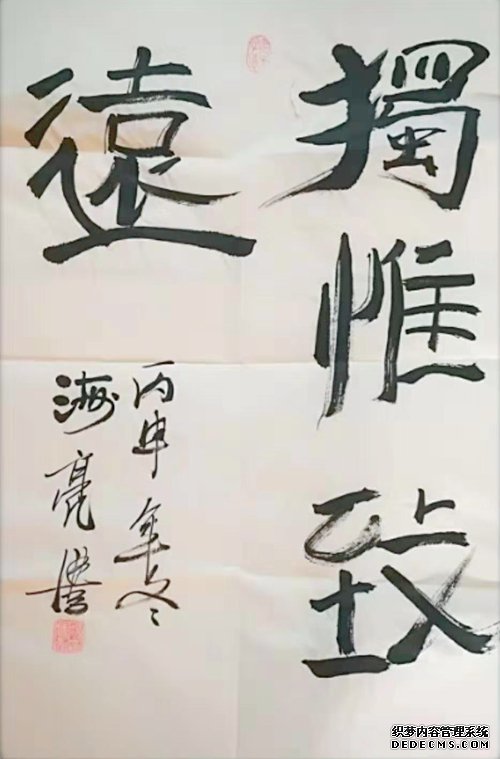 獨惟致
遠
丙申年冬
海亮書
织梦内容管理系统
DEDECMS.COM